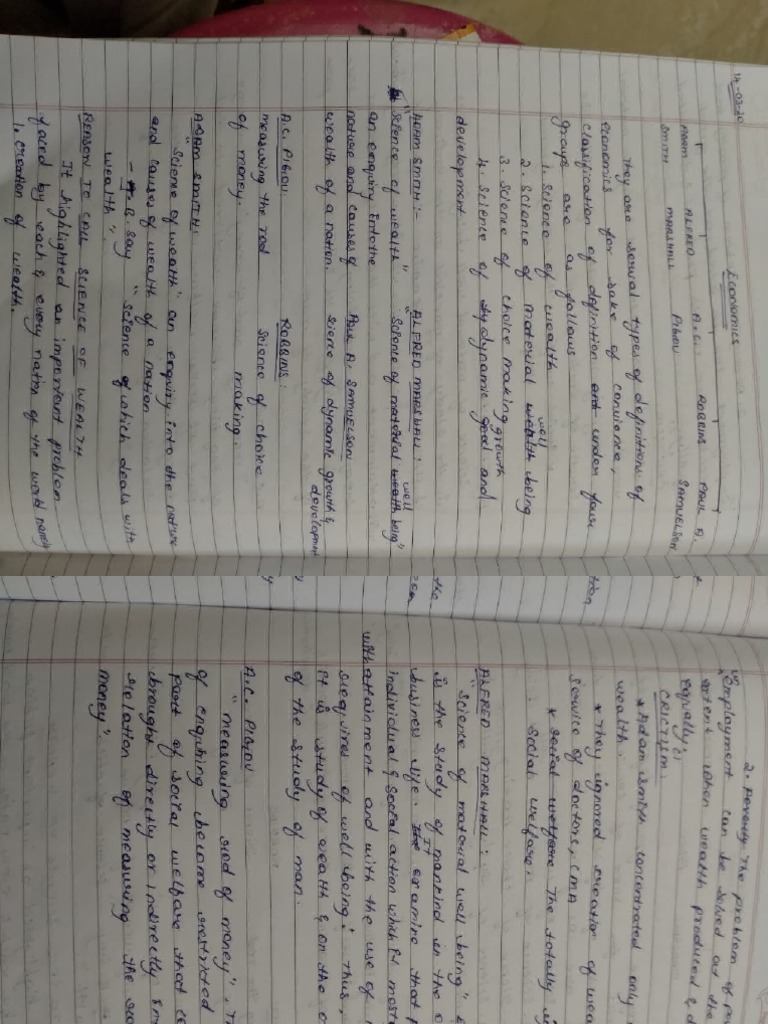 14-02-20
Economics
ADAM SMITH
ALFRED MARSHALL
A.C. PIGOU
ROBBINS
PAUL A. SAMUELSON
They are serval types of definitions of
economics for sake of convience,
classification of definition and under four
groups are as follows
1. Science of wealth
2. Science of material wealth well being
3. Science of choice making growth
4. Science of dynamic good and
development
ADAM SMITH :-
"Science of wealth"
an enquiry into the
nature and causes of
wealth of a nation.
ALFRED MARSHALL :
"Science of material wealth well being"
PAUL A. SAMUELSON
sience of dynamic growth &
development
A.C. PIGOU
measuring the rod
of money.
ROBBINS :
Science of choice
making.
ADAM SMITH:
"Science of wealth" an enquiry into the nature
and causes of wealth of a nation
- J.B. Say "Science of which deals with
wealth".
REASON TO CALL SCIENCE OF WEALTH
It highlighted an important problem
faced by each & every nation of the world namely
1. creation of wealth.
2. Poverty the problem of
employment can be solved at the
extent when wealth produced &
equally;
CRICTISM.
* Adam smith concentrated only
wealth.
* They ignored creation of
service of doctors, CMA
* social welfare The totally
social welfare.
ALFRED MARSHALL :
"Science of material well being"
is the study of mankind in the
business life. The It examine that
individual & social action which is
with attainment and with the use of
requires of well being; Thus,
it is study of wealth & on the
of the study of man.
A.C. PIGOU
"measuring rod of money",
of enquiring become restricted
part of social welfare that
brought directly or indirectly
relation of measuring the
money".